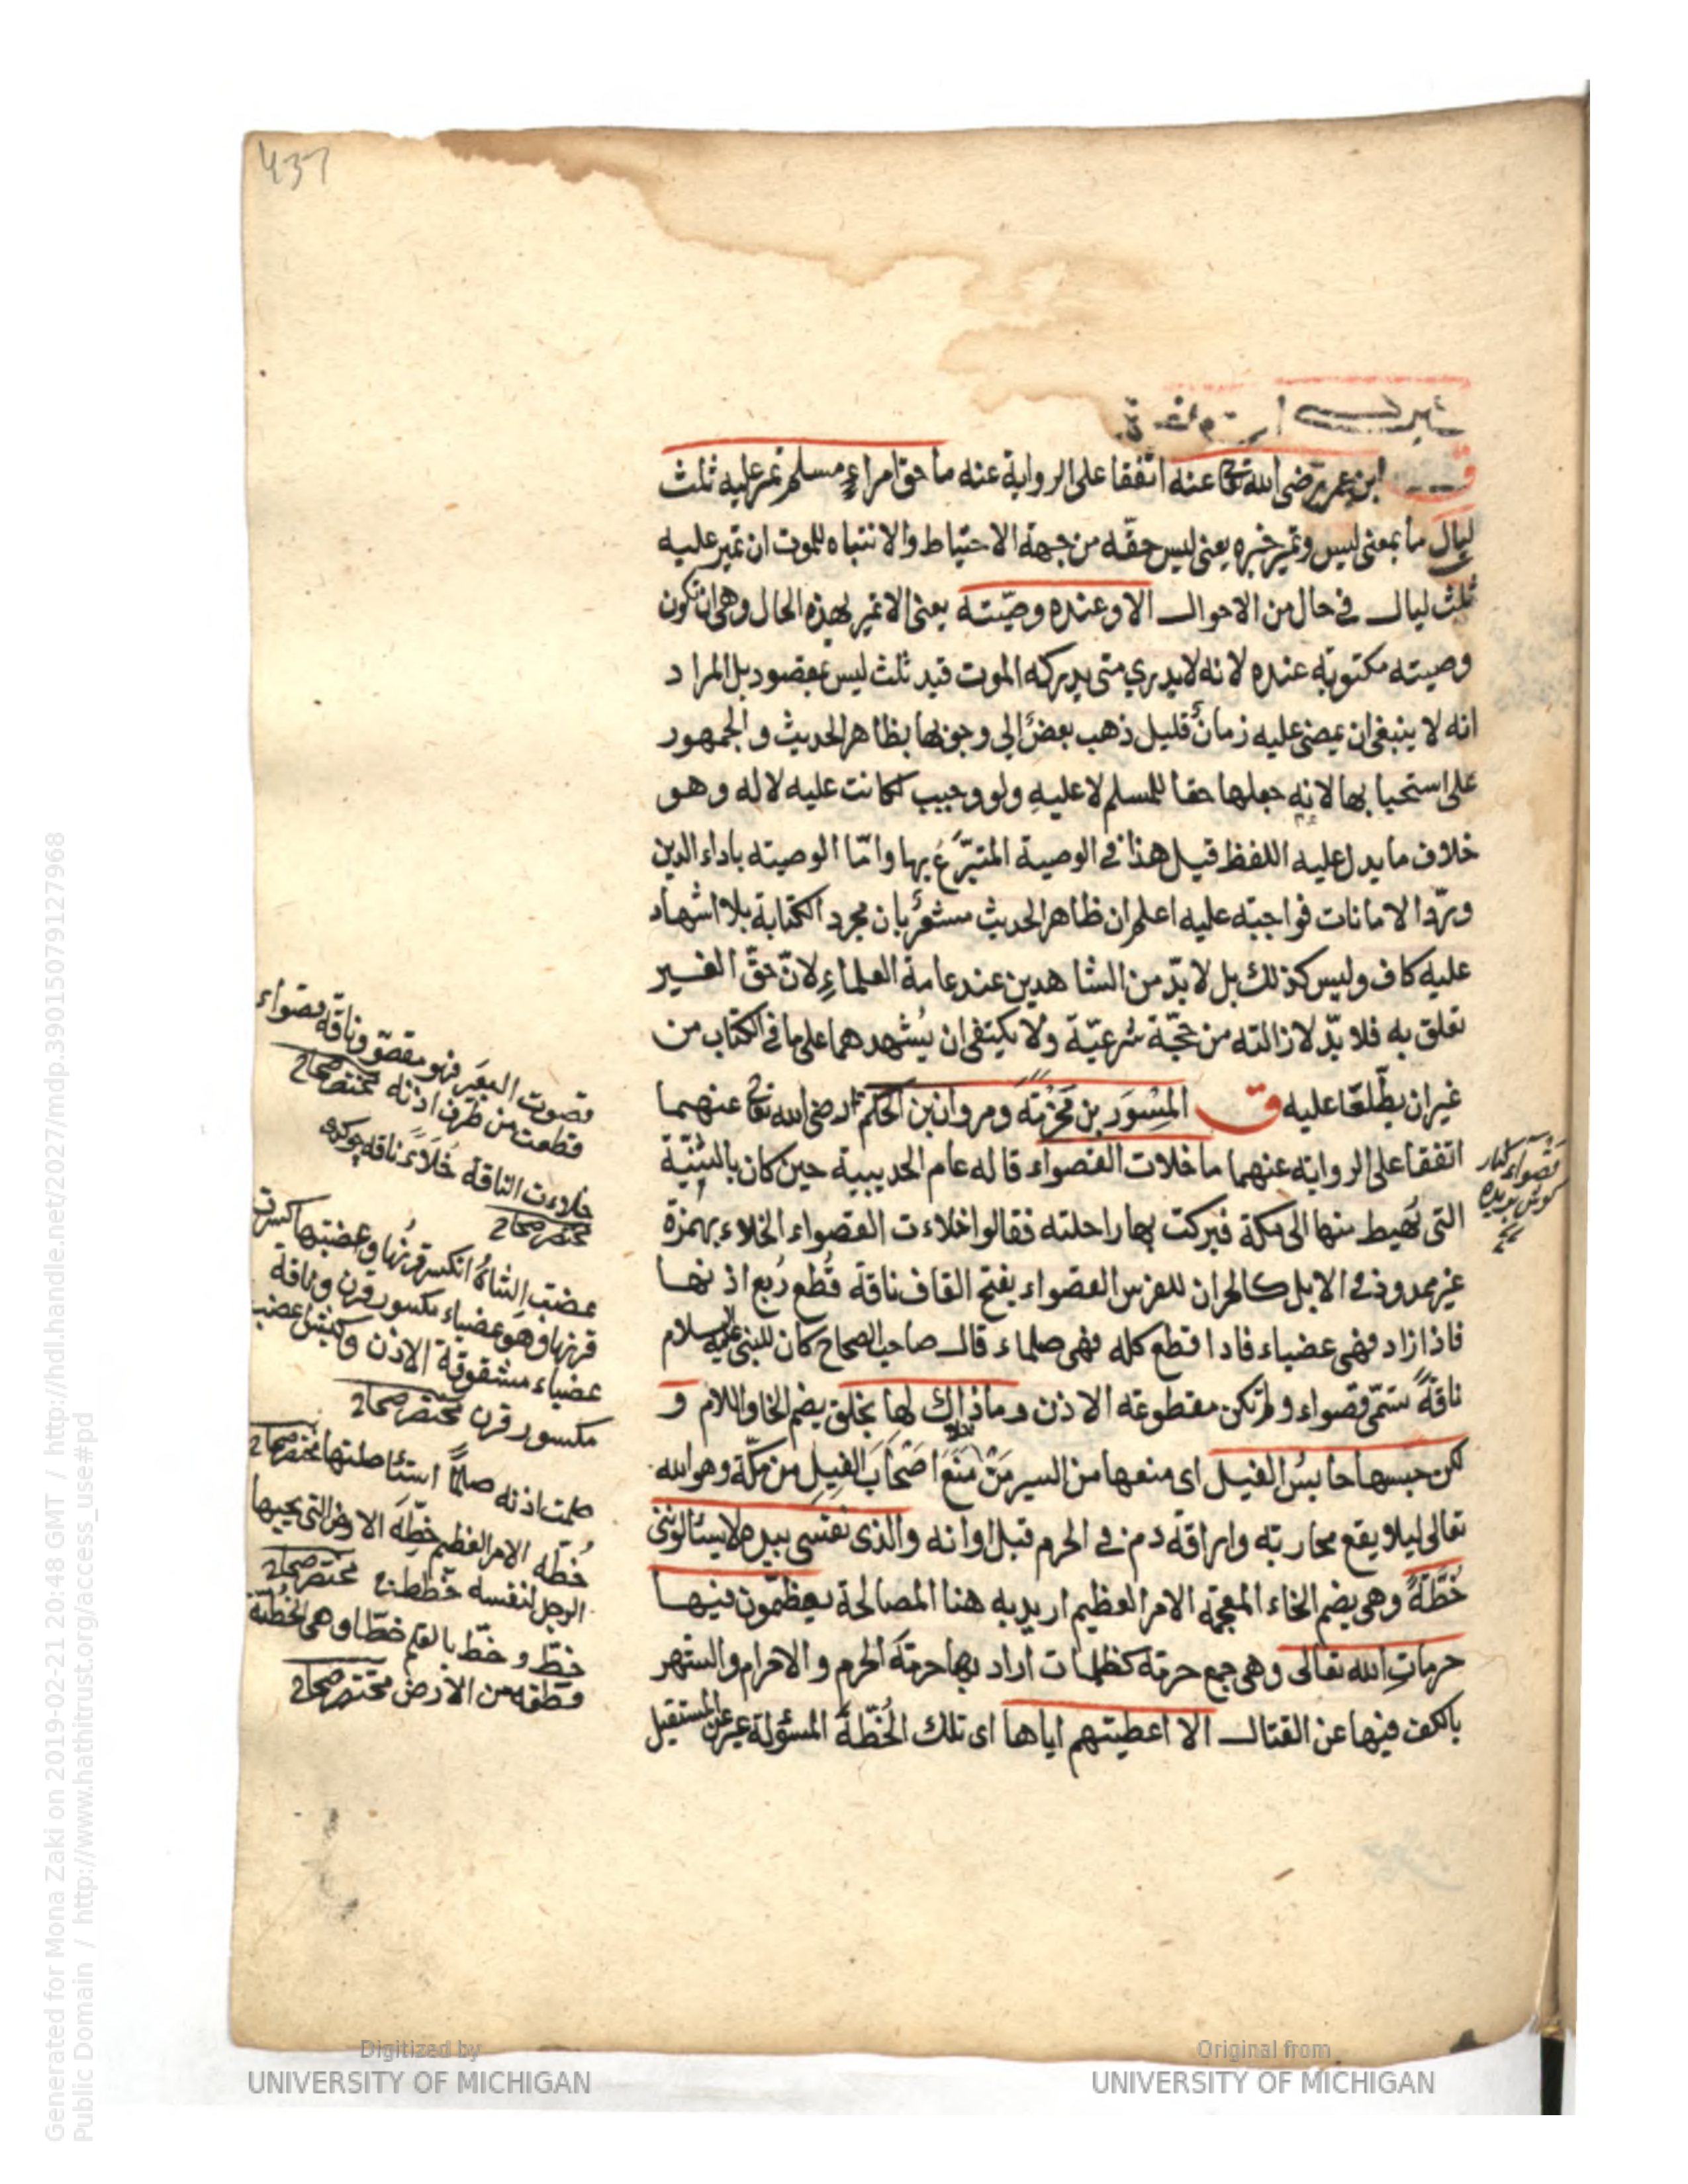 437
ق ابن عمر رضى الله تعا عنه اتفقا على الرواية عنه ما حق امراءٍ مسلم تمر عليه ثلث
ليال ما بمعنى ليس وتمر خبره يعنى ليس حقّه من جهة الاحتياط والانتباه للموت ان تمر عليه
ثلث ليال فى حال من الاحوال الا وعنده وصيّته يعنى الا تمر لهذه الحال وهى ان تكون
وصيته مكتوبه عنده لانه لا يدري متى يدركه الموت قيد ثلث ليس بمقصود بل المراد
انه لا ينبغى ان يمضى عليه زمانٌ قليل ذهب بعضٌ الى وجوبها بظاهر الحديث والجمهور
على استحبابها لانه جعلها حقا للمسلم لا عليه ولو وجبب لكانت عليه لا له وهو
خلاف ما يدل عليه اللفظ قيل هذا فى الوصية المتبرَّعُ بها وامّا الوصيته باداء الدين
وردّ الامانات فواجبته عليه اعلم ان ظاهر الحديث مشعرٌ بان مجرد الكتابة بلا اشهاد
عليه كاف وليس كذلك بل لابدّ من الشاهدين عند عامة العلماءِ لانّ حقّ الغير
تعلق به فلا بدّ لازالته من حجّة شرعيّة ولا يكتفى ان يُشهدهما على ما فى الكتاب من
غير ان يطّلعا عليه ق المِسْوَر بن مَخْرَمَته ومروان بن الحكم رضى الله تعا عنهما
اتفقا على الروايه عنهما ما خلات القصواء قاله عام الحديبية حين كان بالثنيّة
التى يُهبط منها الى مكة فبركت بها راحلته فقالوا خلاءت القصواء الخلاء بهمزة
غير ممدود فى الابل كالحران للفرس القصواء بفتح القاف ناقة قُطع رُبع اذنها
فاذا زاد فهى عضباء فاذا قطع كله فهى صلماء قال صاحب الصحاح كان للنبى عليه السلام
ناقةً تسمّى قصواء ولم تكن مقطوعته الاذن وماذاك لها بخلق بضم الخا واللام و
لكن حبسها حابسُ الفيل اى منعها من السير مَنْ مَنَعَ اَصْحَابَ الفيل من مكّة وهو الله
تعالى ليلا يقع محاربته واراقة دم فى الحرم قبل اوانه والذى نفسى بيده لا يسئالوننى
خُطّةً وهى بضم الخاء المعجمة الامر العظيم اريد به هنا المصالحة يعظّمون فيها
حرماتِ الله تعالى وهى جمع حرمة كظلمات اراد بها حرمةَ الحرم والاحرام والشهر
بالكف فيها عن القتال الا اعطيتهم اياها اى تلك الخُطّةَ المسئولة عبر عن المستقبل
قصواء كنار
كوش بريده
قصوت البعير فهو مقصوّ وناقة قصواء
قطعت من طرف اذنه مختصر صحاح
خلاءت الناقة خلاءً ناقه چوكدى
مختصر صحاح
عضبت الشاةُ انكسر قرنُها وعضبتها كسرت
قرنها وهو عضباء مكسور قرن وناقة
عضباء مشقوقة الاذن وكبش اعضب
مكسور قرن مختصر صحاح
صلمت اذنه صلمًا استئاصلتها مختصر صحاح
خُطّه الامر العظيم خِطّةَ الارض التى يحيها
الرجل لنفسه مختصر صحاح
خطّ و خطّ بالقلم خطّا وهى الخُطّة
من الارض مختصر صحاح
Generated for Mona Zaki on 2019-02-21 20:48 GMT / http://hdl.handle.net/2027/mdp.39015079127968
Public Domain / http://www.hathitrust.org/access_use#pd
Digitized by
UNIVERSITY OF MICHIGAN
Original from
UNIVERSITY OF MICHIGAN